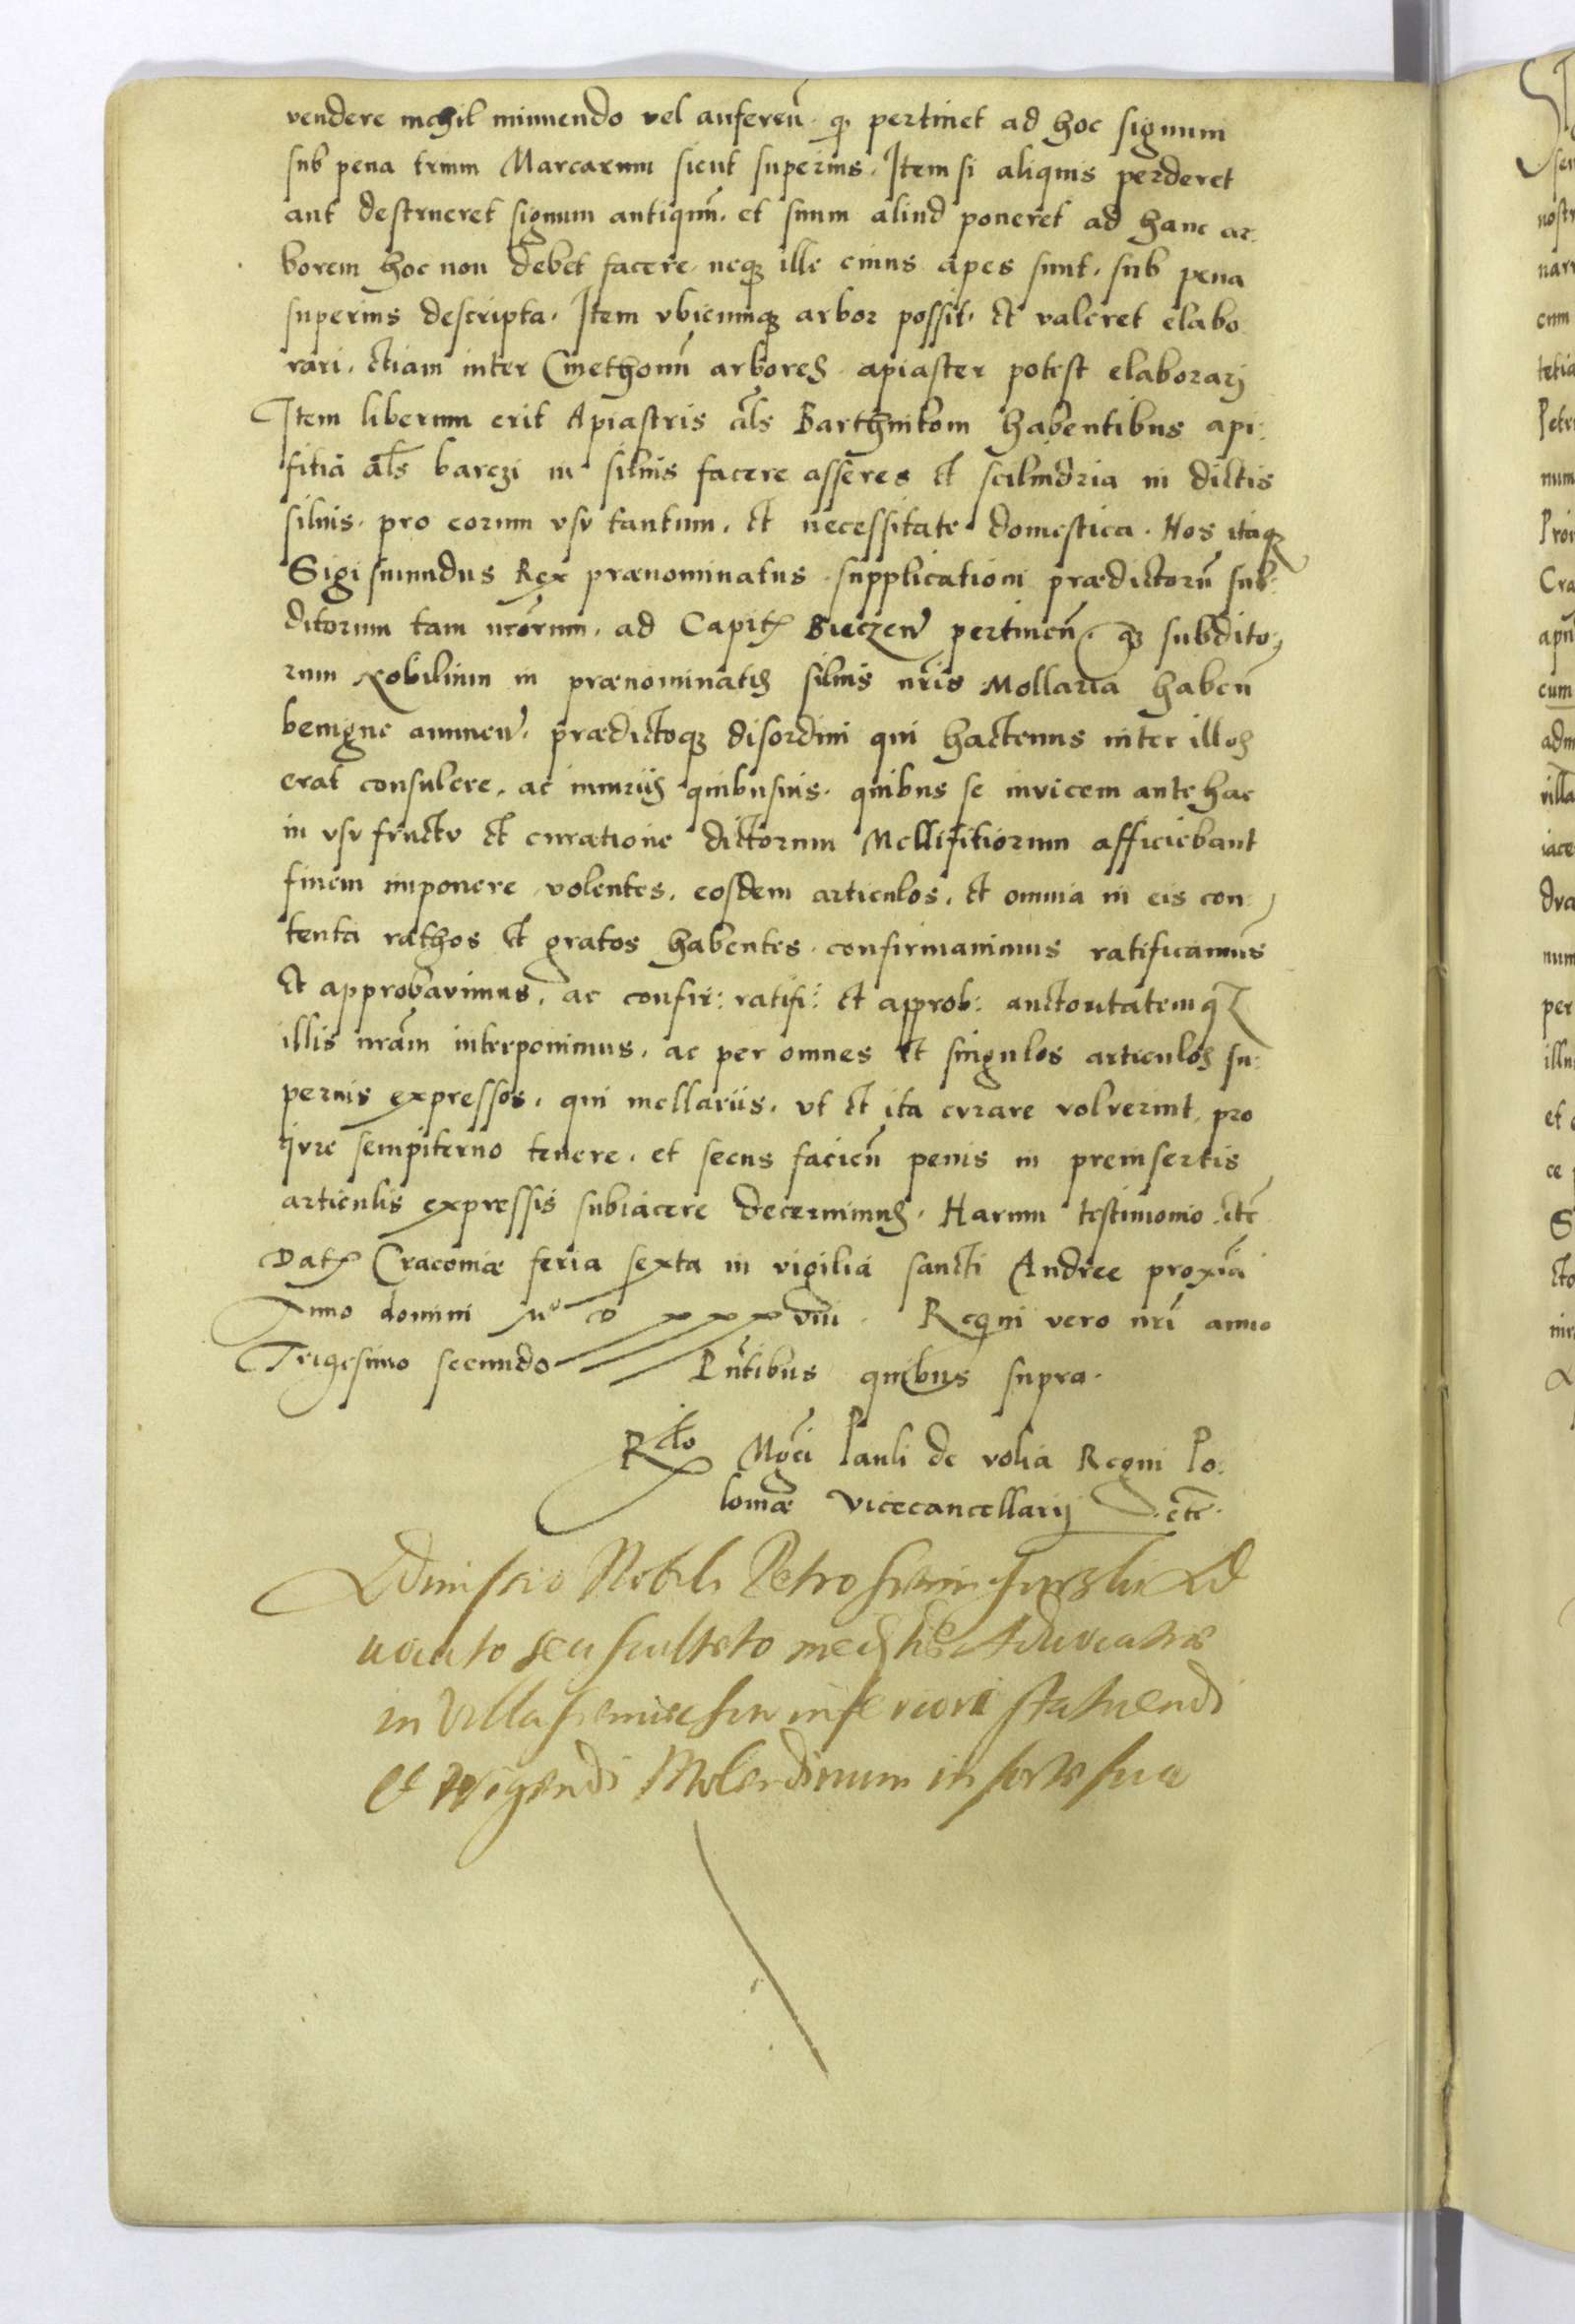 vendere nichil minuendo vel aufereñ. q̃ pertinet ad hoc signum
sub pena trium Marcarum sicut superius. Item si aliquis perderet
aut destrueret signum antiquũ. et suum aliud poneret ad hanc ar:
borem hoc non debet facere neq3 ille cuius apes sunt. sub pena
superius descripta. Item vbicumq3 arbor possit. et valeret elabo
rari. etiam inter Cmethonũ arbores. apiaster potest elaborarj
Item liberum erit Apiastris al̃s Barthnikom habentibus api:
fitia al̃s barczi in siluis facere asseres et scilindria in dictis
siluis. pro eorum vsv tantum. et necessitate domestica. Nos itaq3
Sigismundus Rex prænominatus supplicationi prædictorũ sub:
ditorum tam nr̃orum. ad Capit Bieczeñ pertineñ. q3 subdito
rum Nobilium in prænominatis siluis nr̃is Mollaria habeñ
benigne annueñ. prædictoq3 disordini qui hactenus inter illos
erat consulere. ac iniuriis quibusuis. quibus se invicem antehac
in vsv fructv et curatione dictorum Mellifitiorum afficiebant
finem imponere volentes. eosdem articulos. et omnia in eis con:
tenta rathos et gratos habentes. confirmauimus ratificamus
et approbavimus. ac confir: ratifi: et approb: auctoritatemq3
illis nr̃am interponimus. ac per omnes et singulos articulos su:
perius expressos. qui mellariis. vt et ita cvrare volverint. pro
ivre sempiterno tenere. et secus facieñ penis in preinsertis
articulis expressis subiacere decernimus. Harum testimonio etc̃
Dat Cracouiæ feria sexta in vigilia sancti Andree proxia
Anno domini Mº D xxxviii. Regni vero nr̃i anno
Trigesimo secundo Pñtibus quibus supra.
Rᶜᵗᵒ Mg̃ci Pauli de volia Regni Po:
loniæ Vicecancellarij etc̃.
Admissio Nobili Petro Ad
uocato seu sculteto Aduocatiæ
in Villa inferiori statuendi
et erigendi Molendinum in sorte sua